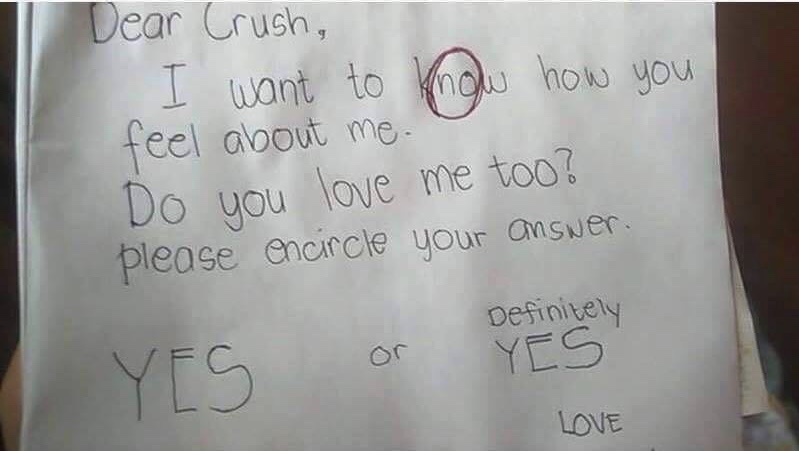 Dear Crush,
I want to know how you
feel about me.
Do you love me too?
please encircle your answer.
YES or Definitely YES
LOVE